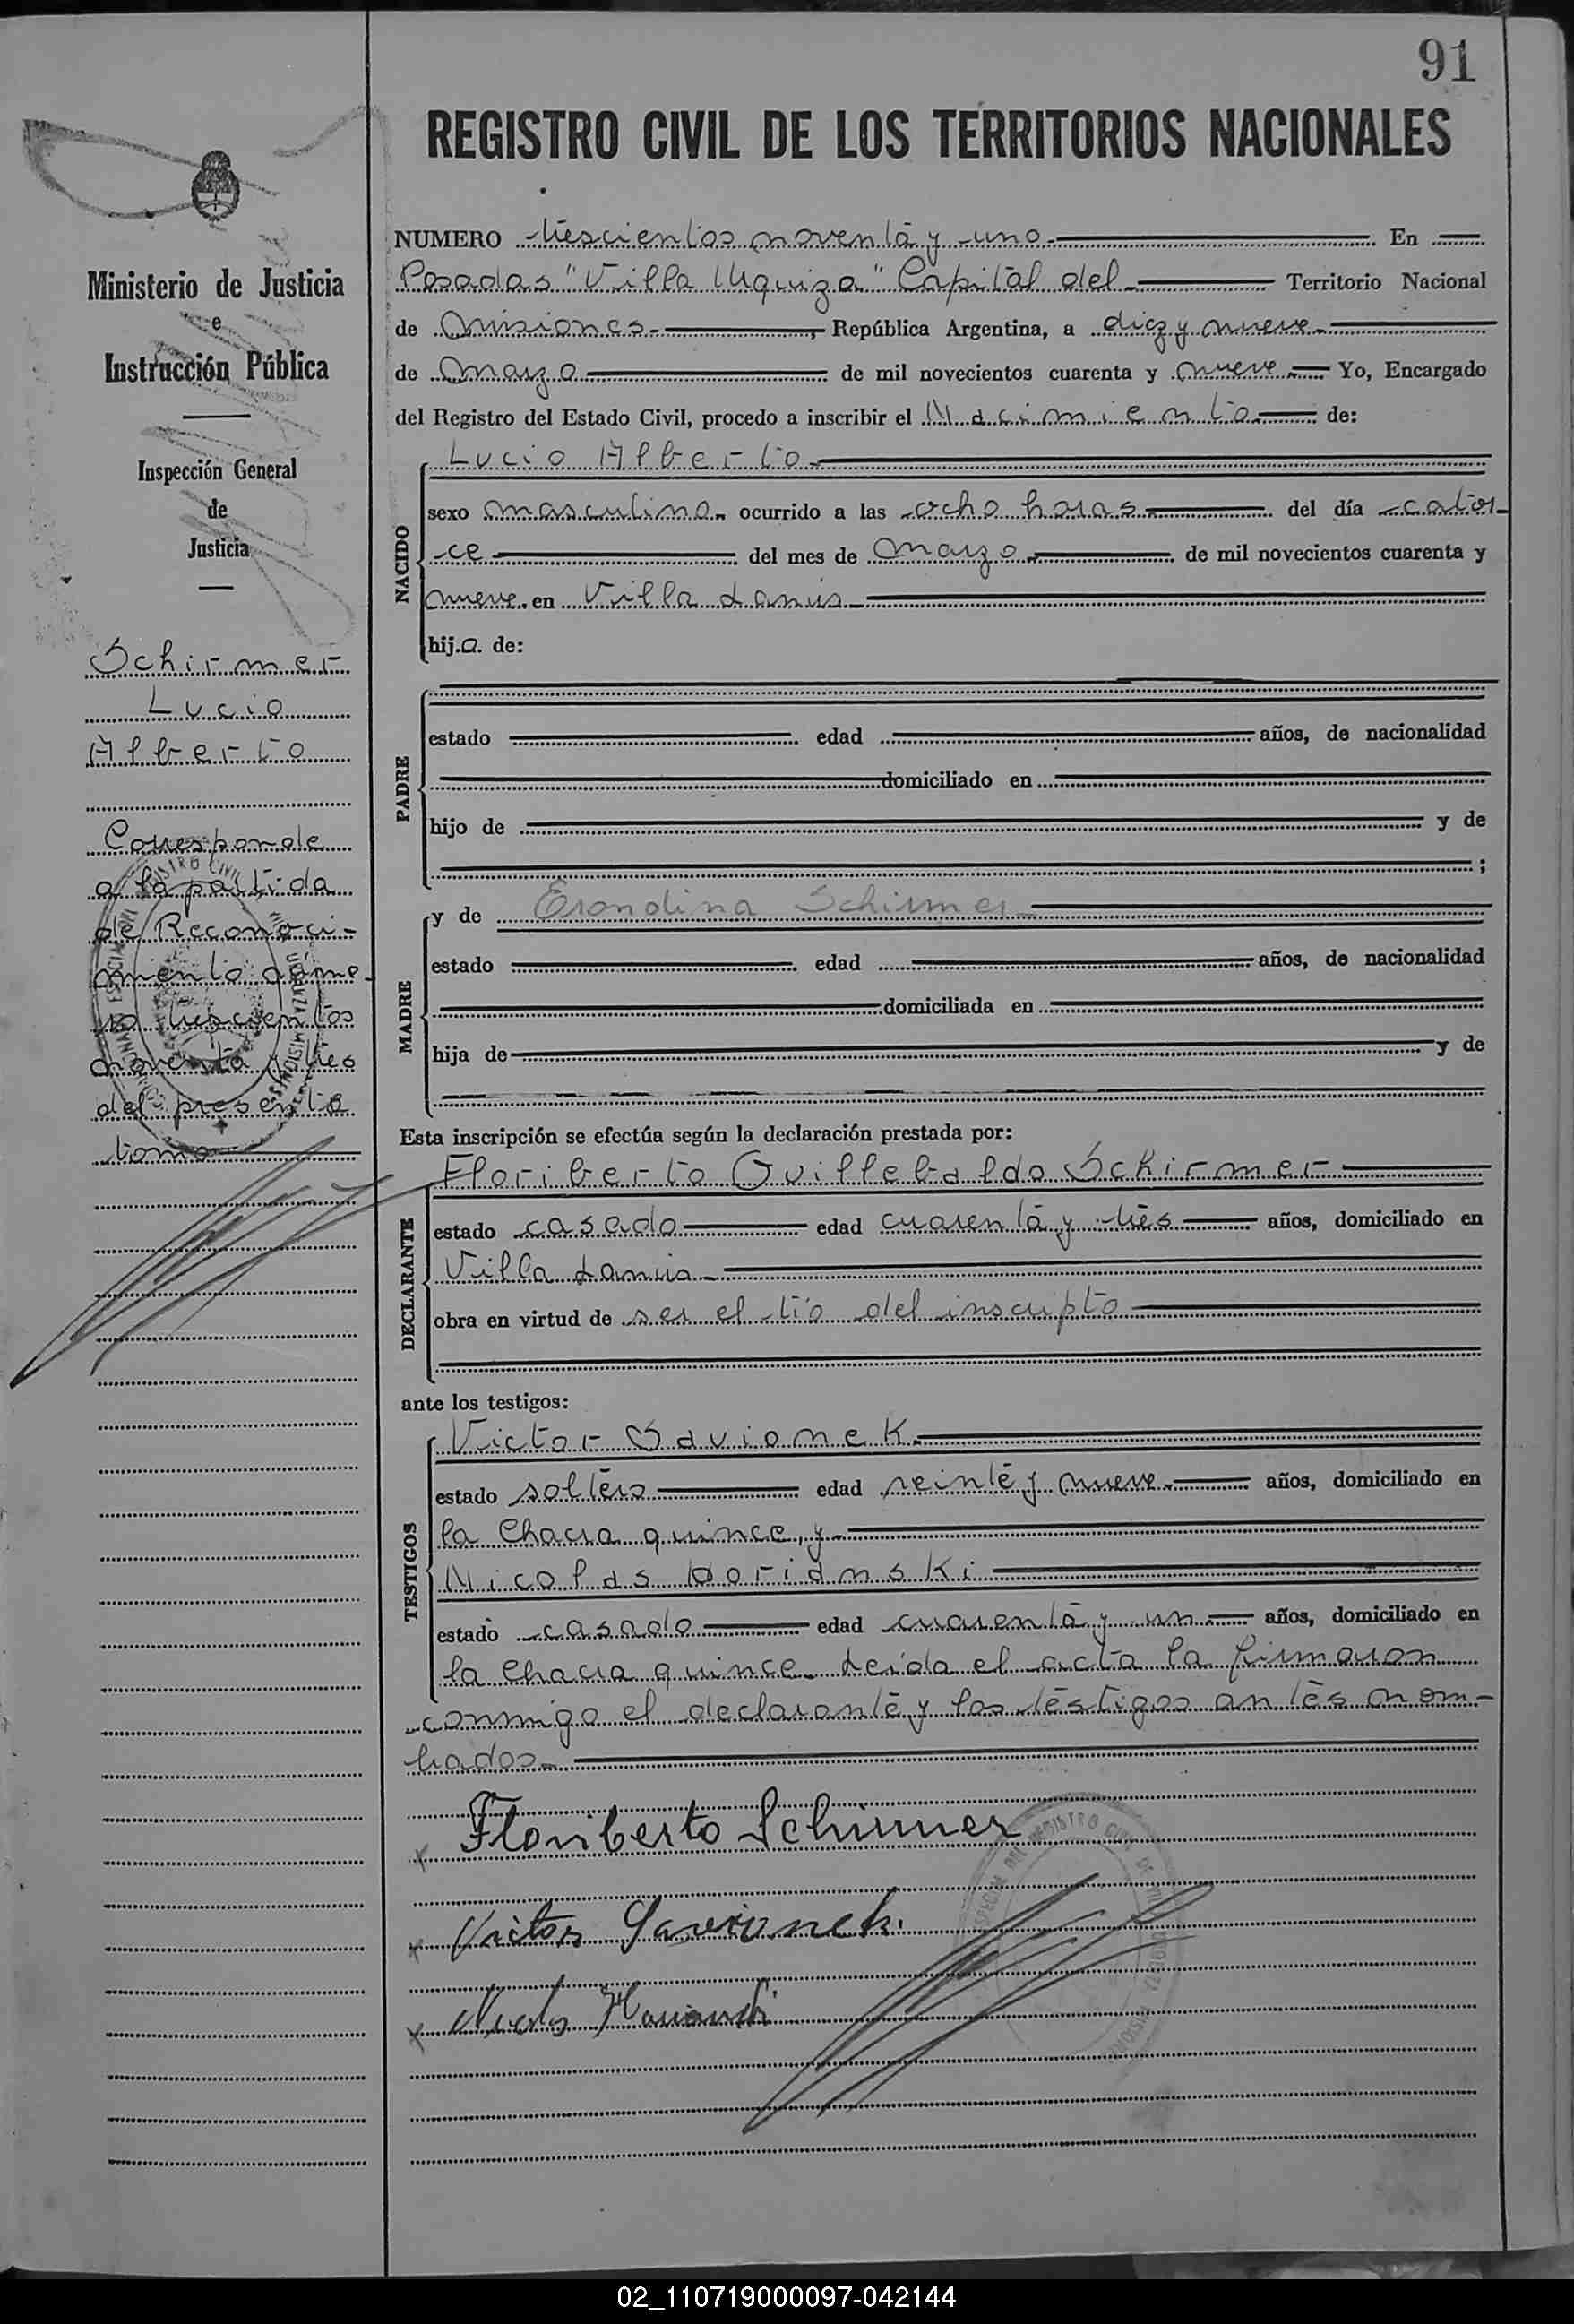 91
REGISTRO CIVIL DE LOS TERRITORIOS NACIONALES
Ministerio de Justicia
e
Instrucción Pública
Inspección General
de
Justicia
Schirmer
Lucio
Alberto
Corresponde
a la partida
de Reconoci-
miento núme-
ro trescientos
noventa y tres
del presente
tomo
NUMERO trescientos noventa y uno En
Posadas "Villa Urquiza" Capital del Territorio Nacional
de Misiones, República Argentina, a diez y nueve
de Marzo de mil novecientos cuarenta y nueve Yo, Encargado
del Registro del Estado Civil, procedo a inscribir el Nacimiento de:
NACIDO
Lucio Alberto
sexo masculino ocurrido a las ocho horas del día cator-
ce del mes de Marzo de mil novecientos cuarenta y
nueve en Villa Lanús
hijo de:
PADRE
estado edad años, de nacionalidad
domiciliado en
hijo de y de
;
MADRE
y de Erondina Schirmer
estado edad años, de nacionalidad
domiciliada en
hija de y de
Esta inscripción se efectúa según la declaración prestada por:
DECLARANTE
Floriberto Guillebaldo Schirmer
estado casado edad cuarenta y tres años, domiciliado en
Villa Lanús
obra en virtud de ser el tío del inscripto
ante los testigos:
TESTIGOS
Victor Savionek
estado soltero edad veinte y nueve años, domiciliado en
la Chacra quince, y
Nicolas
estado casado edad cuarenta y un años, domiciliado en
la Chacra quince. Leída el acta la firmaron
conmigo el declarante y los testigos antes nom-
brados
x Floriberto Schirmer
x Victor Savionek.
x
02_110719000097-042144